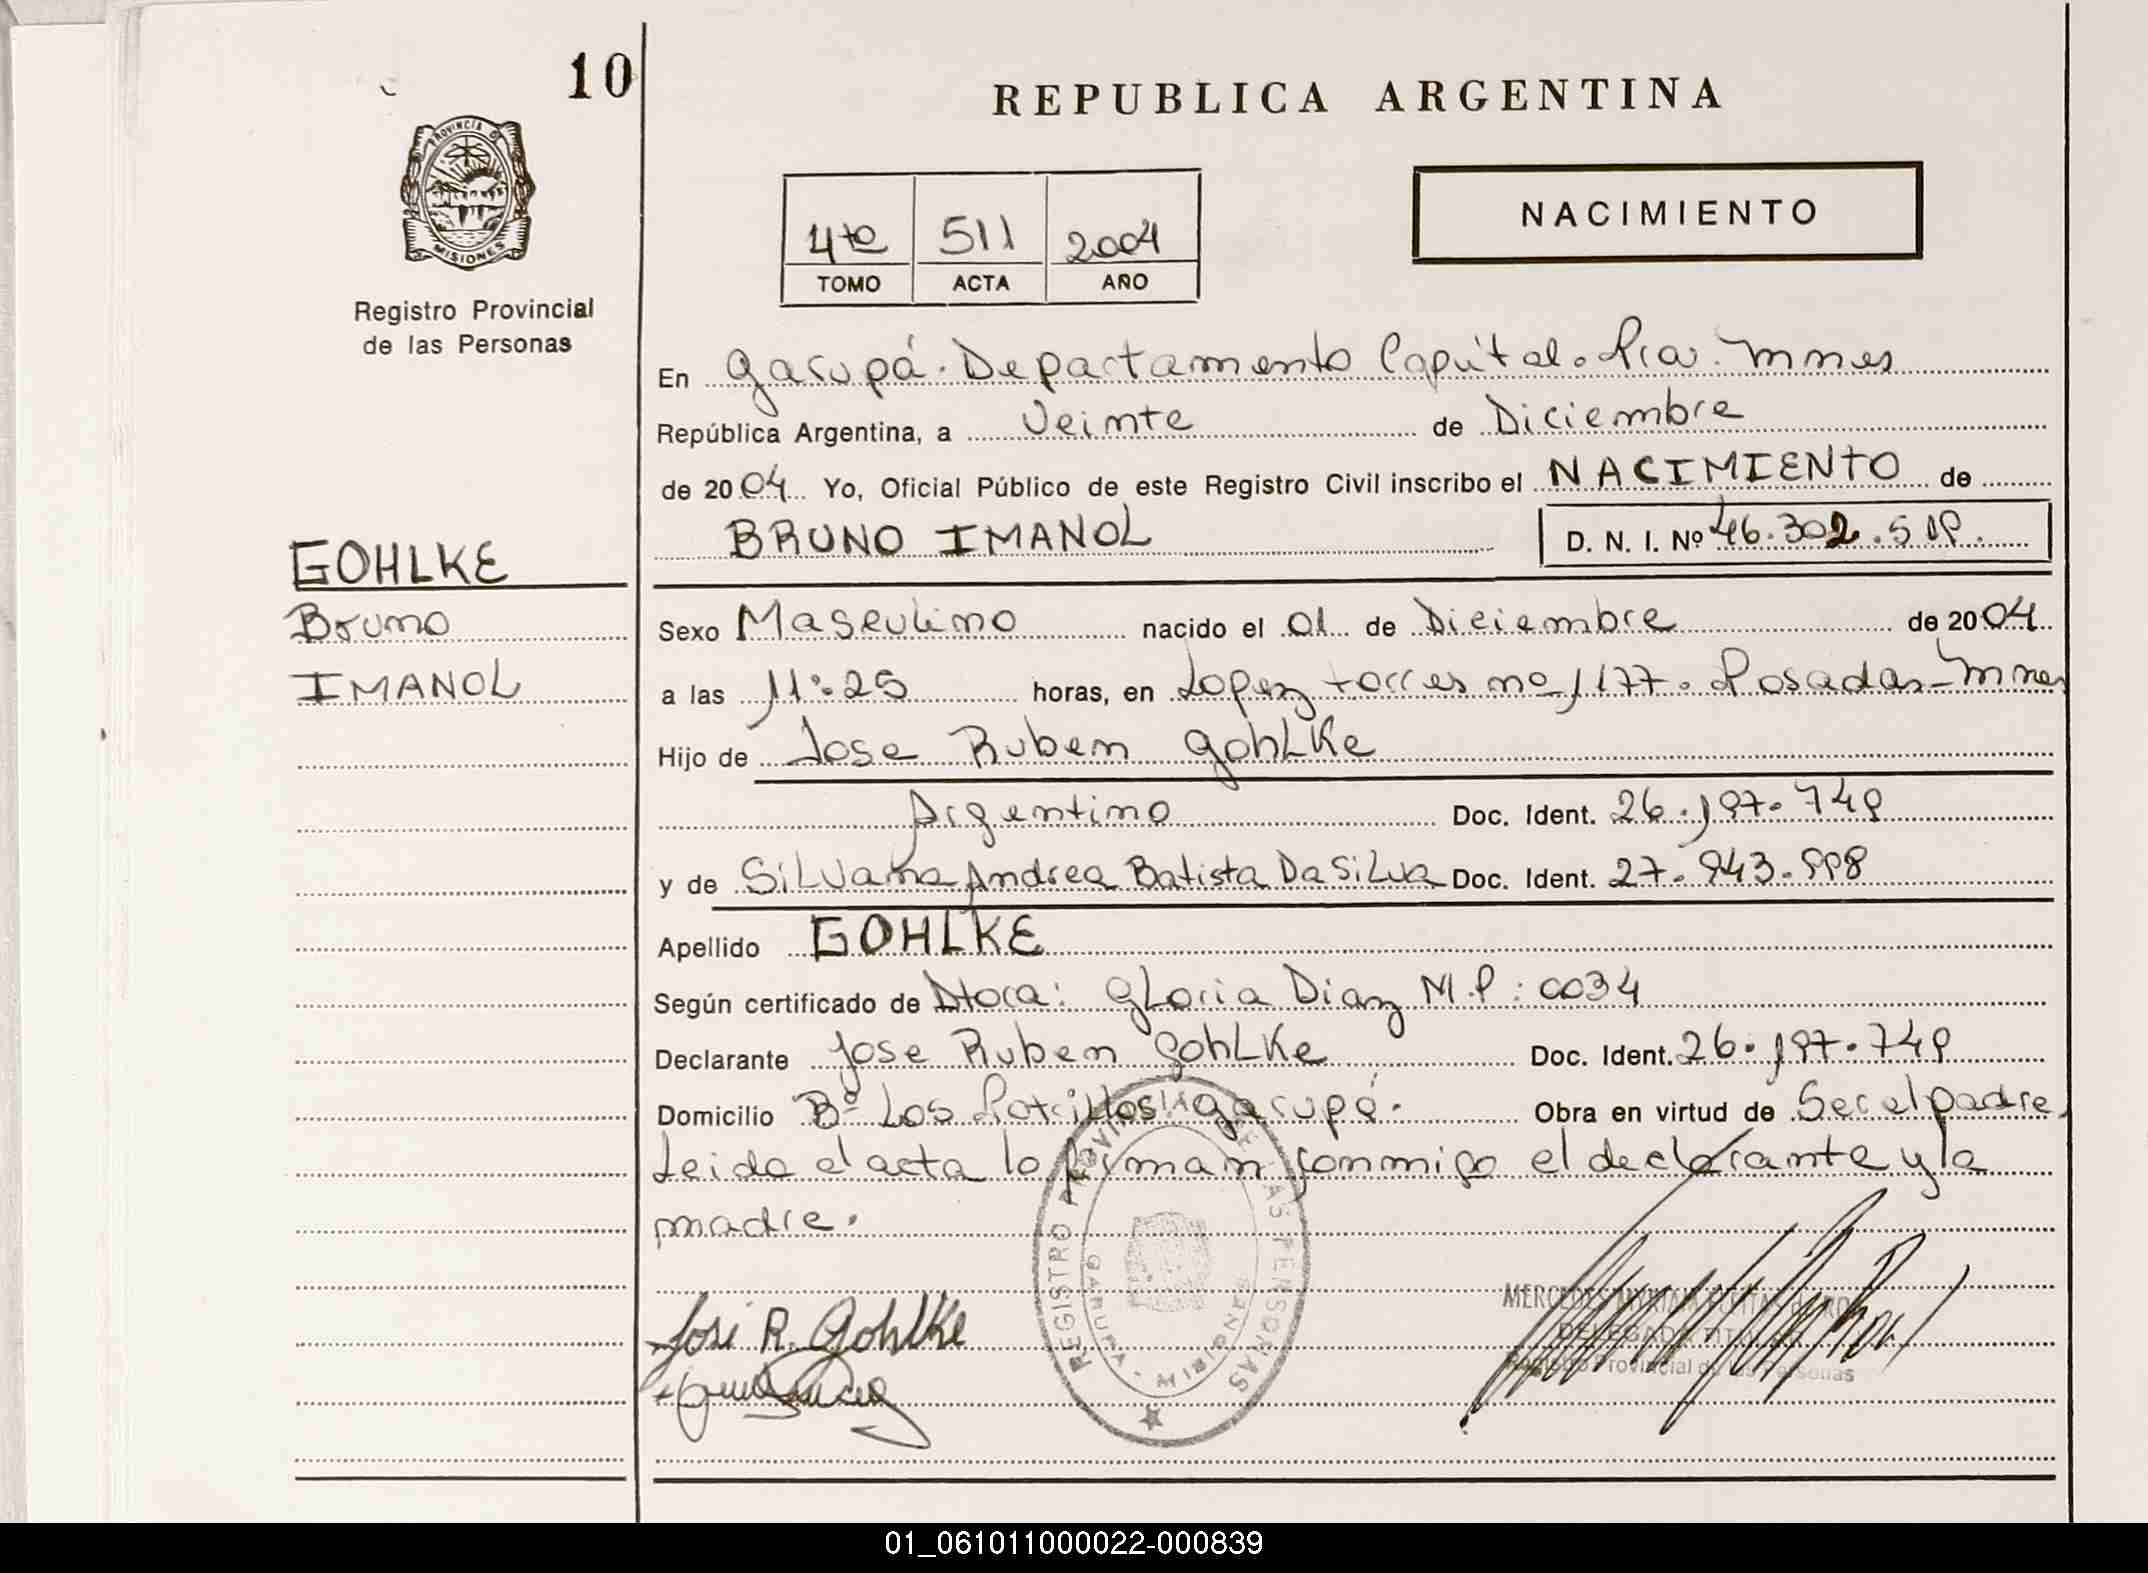 10
REPUBLICA ARGENTINA
PROVINCIA DE
MISIONES
Registro Provincial
de las Personas
NACIMIENTO
4to 511 2004
TOMO ACTA AÑO
En Garupá. Departamento Capital. Pcia. Mnes
República Argentina, a Veinte de Diciembre
de 2004 Yo, Oficial Público de este Registro Civil inscribo el NACIMIENTO de
BRUNO IMANOL D. N. I. Nº 46.302.519.
GOHLKE
Bruno
IMANOL
Sexo Masculino nacido el 01 de Diciembre de 2004
a las 11:25 horas, en Lopez torres nº 1177. Posadas-Mnes
Hijo de Jose Ruben Gohlke
Argentino Doc. Ident. 26.197.749
y de Silvana Andrea Batista Da Silva Doc. Ident. 27.943.998
Apellido GOHLKE
Según certificado de Dtora: Gloria Diaz M.P: 0034
Declarante Jose Ruben Gohlke Doc. Ident. 26.197.749
Domicilio Bº Los Potrillos Garupá. Obra en virtud de Ser el padre.
Leida el acta lo firman conmigo el declarante y la
madre.
José R. Gohlke
REGISTRO PROVINCIAL DE LAS PERSONAS
GARUPA - MISIONES
MERCEDES MYRIAM
DELEGADA TITULAR
Registro Provincial de las Personas
01_061011000022-000839